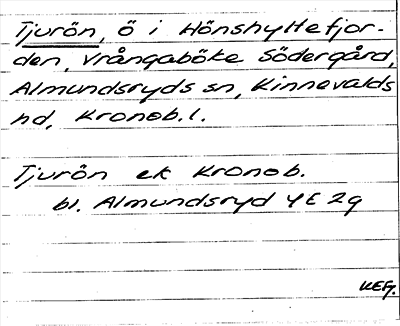 Tjurön, ö i Hönshyltefjor-
den, Vrångaböke Södergård,
Almundsryds sn, Kinnevalds
hd, Kronob. l.
Tjurön ek Kronob.
bl. Almundsryd 4E 2g